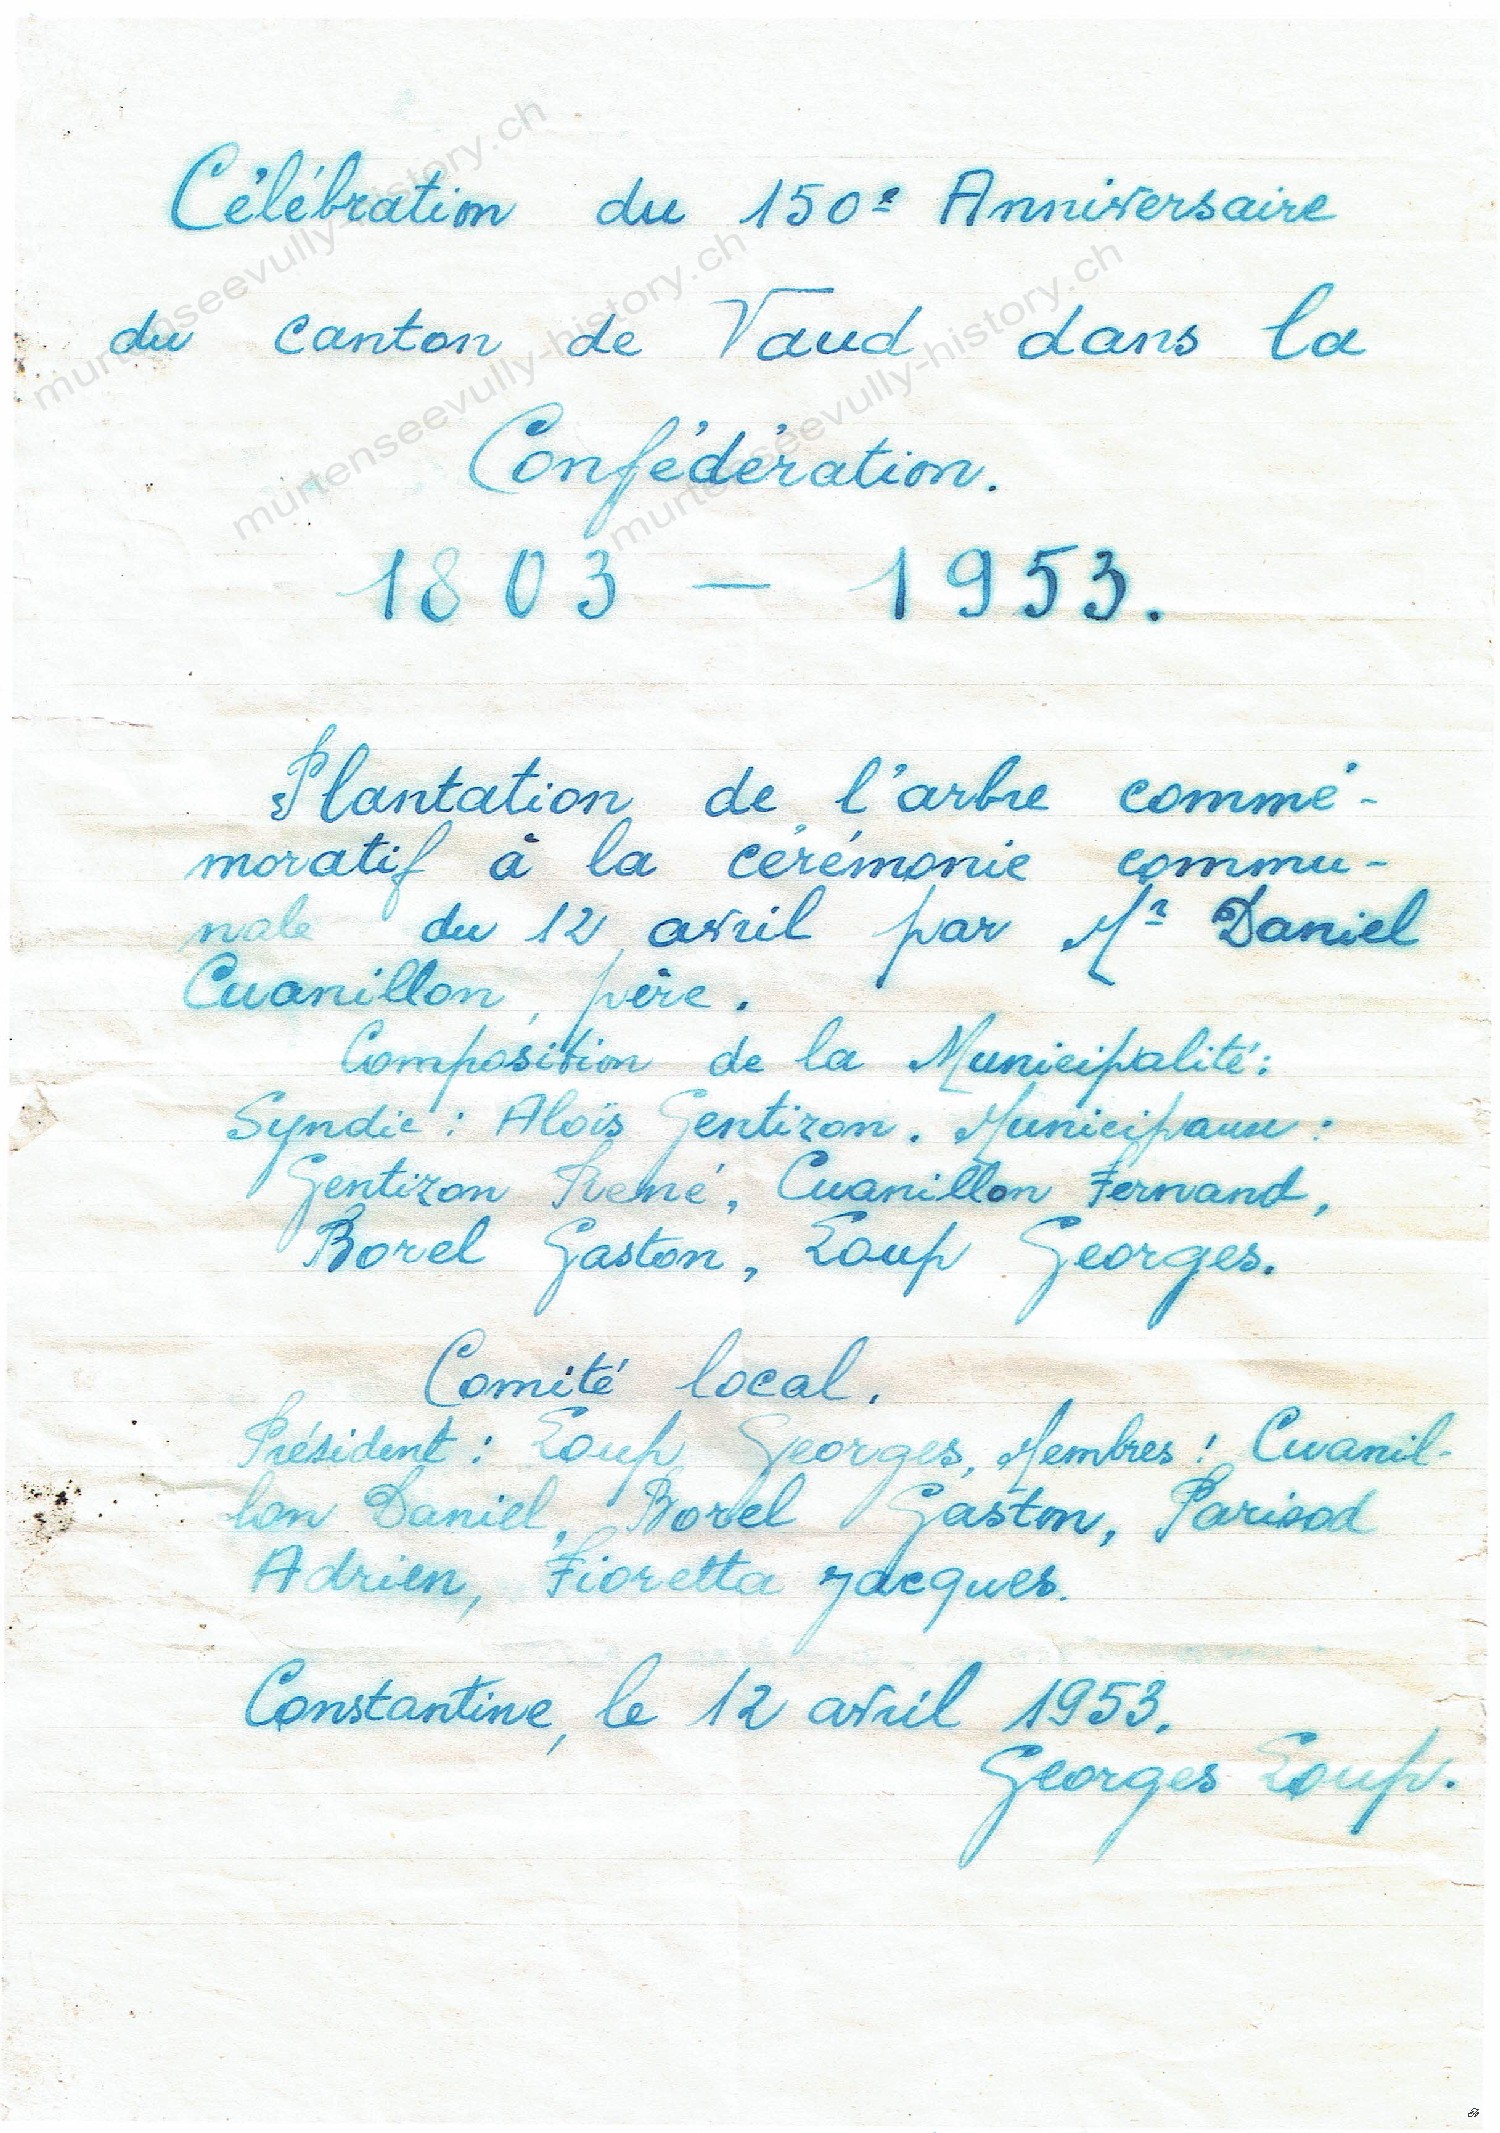 Célébration du 150e Anniversaire
du canton de Vaud dans la
Confédération.
1803 — 1953.
Plantation de l'arbre commé-
moratif à la cérémonie commu-
nale du 12 avril par Mr Daniel
Cuanillon, père.
Composition de la Municipalité:
Syndic : Aloïs Gentizon. Municipaux :
Gentizon René, Cuanillon Fernand,
Borel Gaston, Loup Georges.
Comité local.
Président : Loup Georges, Membres : Cuanil-
lon Daniel, Borel Gaston, Parisod
Adrien, Fioretta Jacques.
Constantine, le 12 avril 1953.
Georges Loup.
murtenseevully-history.ch
murtenseevully-history.ch
murtenseevully-history.ch